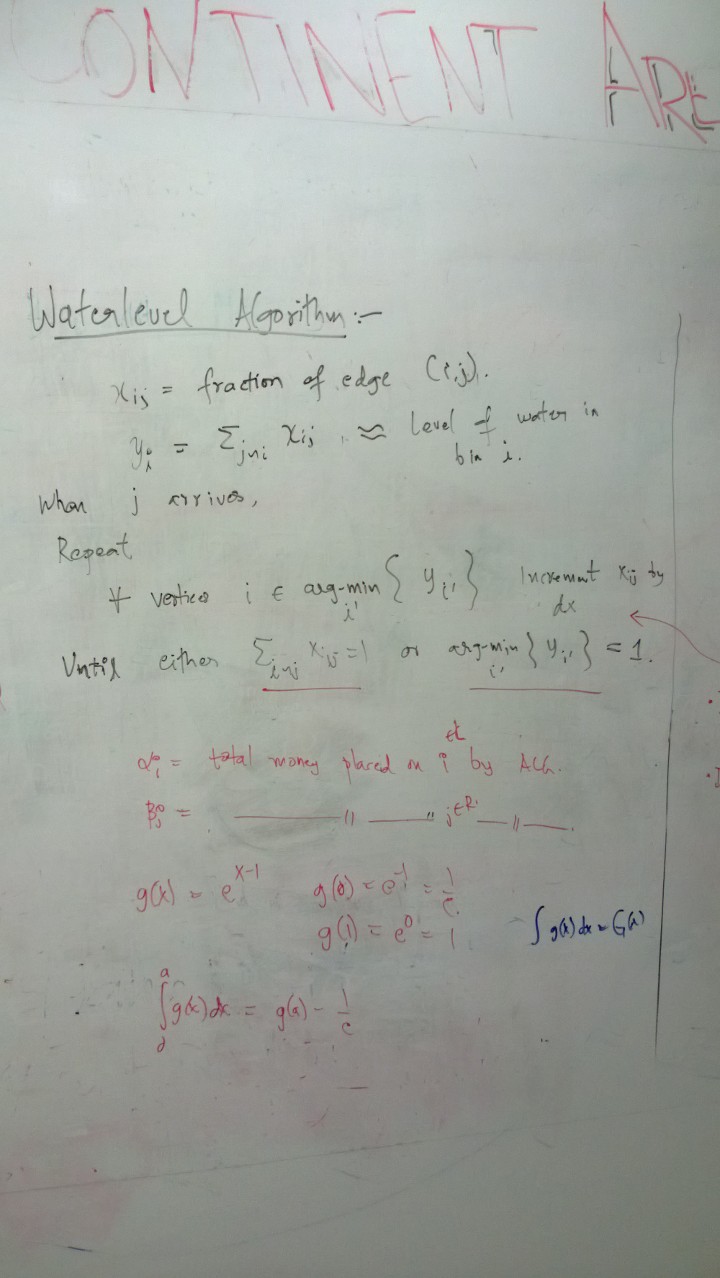 CONTINENT ARE
Waterlevel Algorithm :-
x_ij = fraction of edge (i,j).
y_i = Σ_{j~i} x_ij ≈ level of water in bin i.
When j arrives,
Repeat
∀ vertices i ∈ arg-min_{i'} { y_{i'} } Increment x_ij by dx
Until either Σ_{i~j} x_ij = 1 or arg-min_{i'} { y_{i'} } = 1.
α_i = total money placed on i ∈L by ALG.
β_j = ——— " ——— " j ∈R. — " ——.
g(x) = e^{x-1} g(0) = e^{-1} = 1/e.
g(1) = e^0 = 1 ∫ g(x) dx = G(x)
∫_0^a g(x) dx = g(a) - 1/e